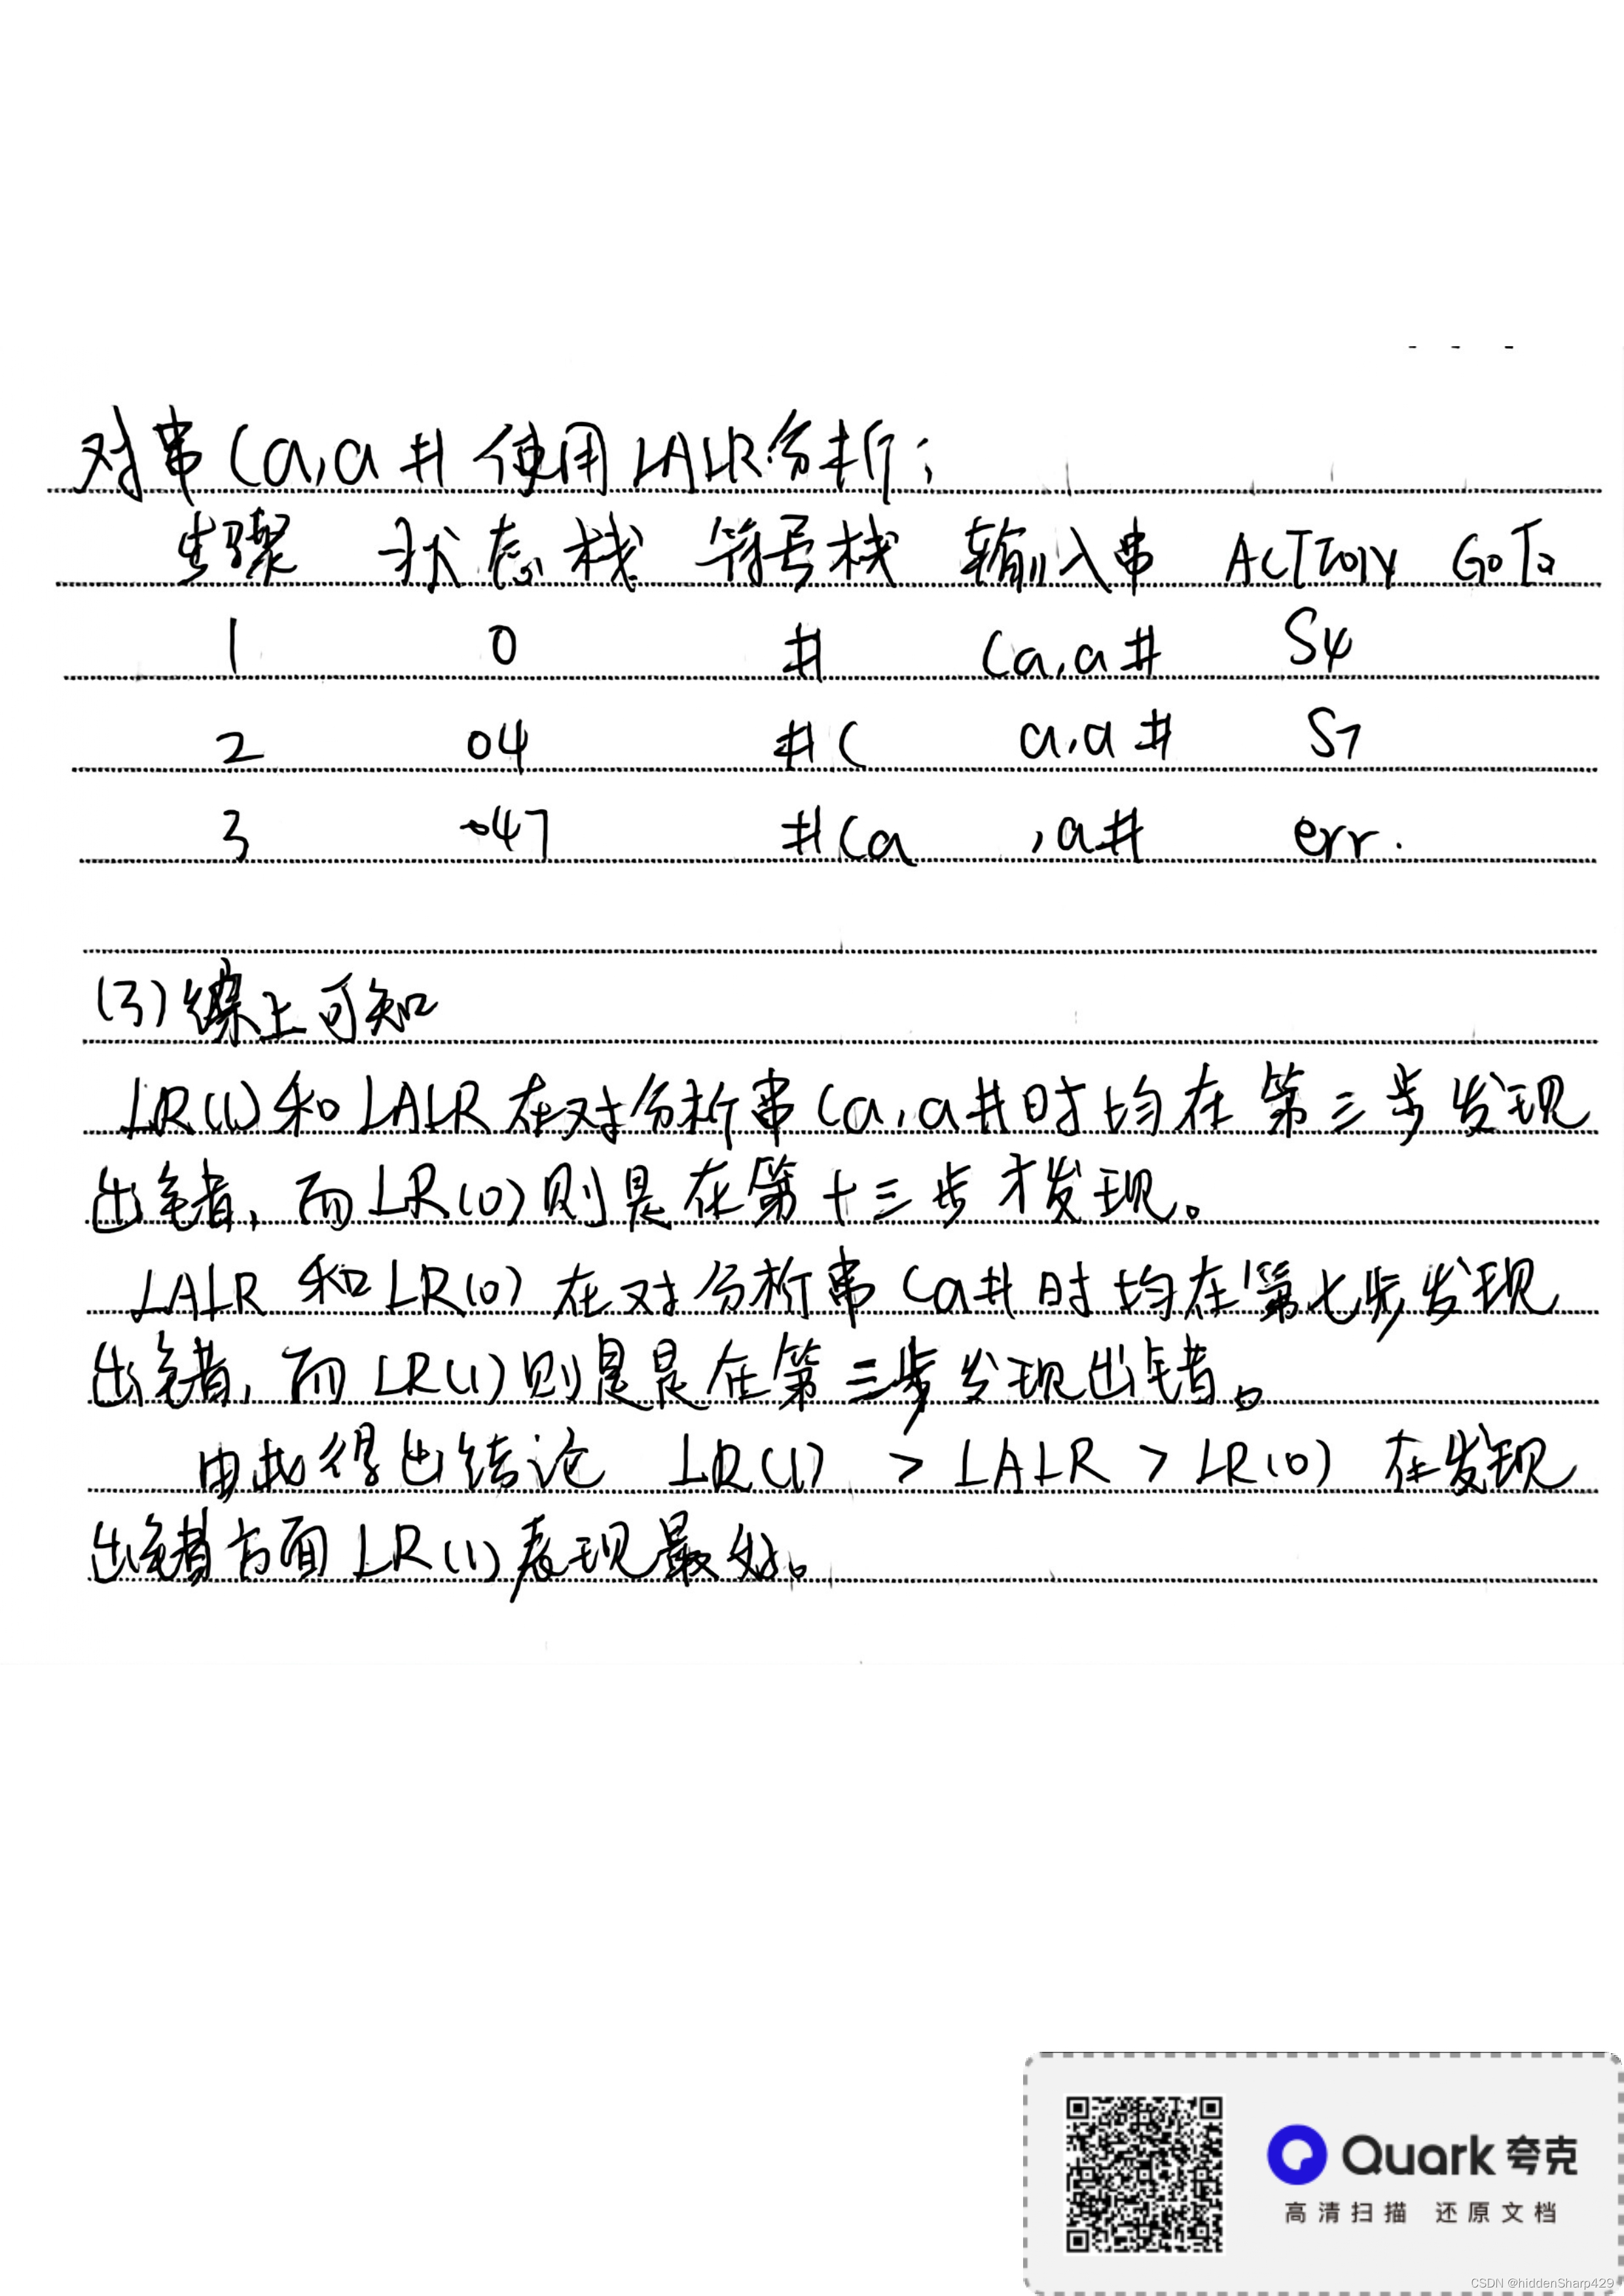 对串(a,a#使用LALR分析;
步骤 状态栈 符号栈 输入串 ACTION GOTO
1 0 # (a,a# S4
2 04 #( a,a# S7
3 047 #(a ,a# err.
(3)综上可知
LR(1)和LALR在对分析串(a,a#时均在第三步发现
出错,而LR(0)则是在第十三步才发现。
LALR和LR(0)在对分析串(a#时均在第七步发现
出错,而LR(1)则是是在第三步发现出错。
由此得出结论 LR(1) > LALR > LR(0) 在发现
出错方面LR(1)表现最好。
Quark夸克
高清扫描 还原文档
CSDN @hiddenSharp429